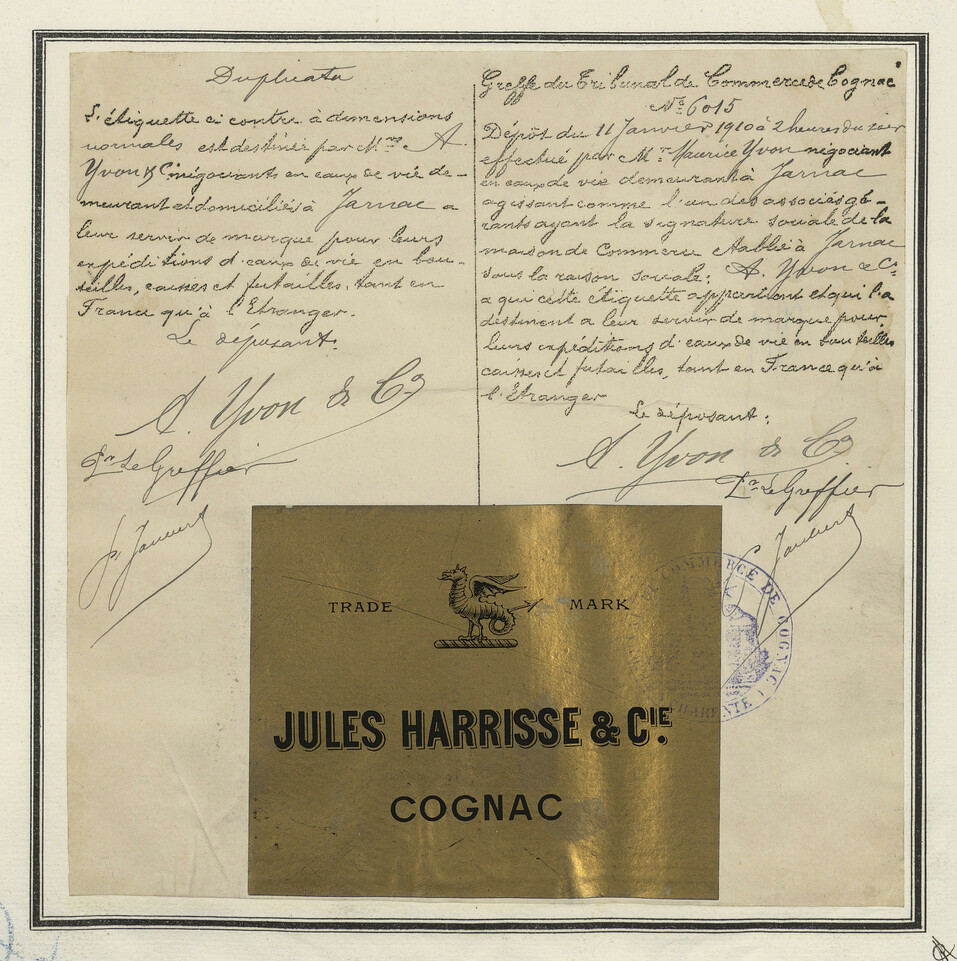 Duplicata
L'étiquette ci contre à dimensions
normales est destinée par Mrs A.
Yvon & Cie négociants en eaux de vie de-
meurant et domiciliés à Jarnac a
leur servir de marque pour leurs
expéditions d'eaux de vie en bou-
teilles, caisses et futailles, tant en
France qu'à l'Etranger.
Le déposant:
A. Yvon & Co
Pr Le Greffier
Greffe du Tribunal de Commerce de Cognac
No 6015
Dépôt du 11 Janvier 1910 à 2 heures du soir
effectué par Mr Maurice Yvon négociant
en eaux de vie demeurant à Jarnac
agissant comme l'un des associés gé-
rants ayant la signature sociale de la
maison de Commerce établie à Jarnac
sous la raison sociale: A. Yvon & Co
a qui cette étiquette appartient et qui l'a
destinent a leur servir de marque pour
leurs expéditions d'eaux de vie en bouteilles
caisses et futailles, tant en France qu'à
l'Etranger
Le déposant:
A. Yvon & Co
Pr Le Greffier
TRADE MARK
JULES HARRISSE & CIE.
COGNAC
COMMERCE DE COGNAC
CHARENTE